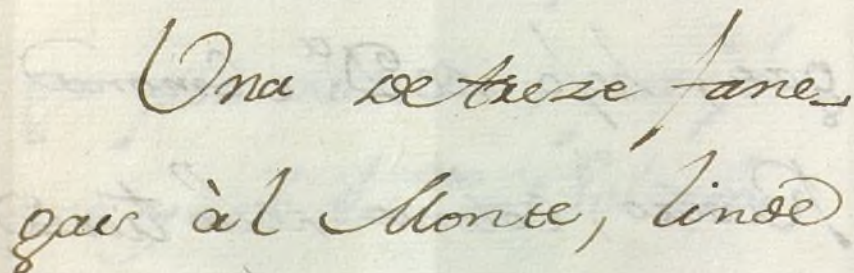 Una de treze fane-
gas àl Monte, linde